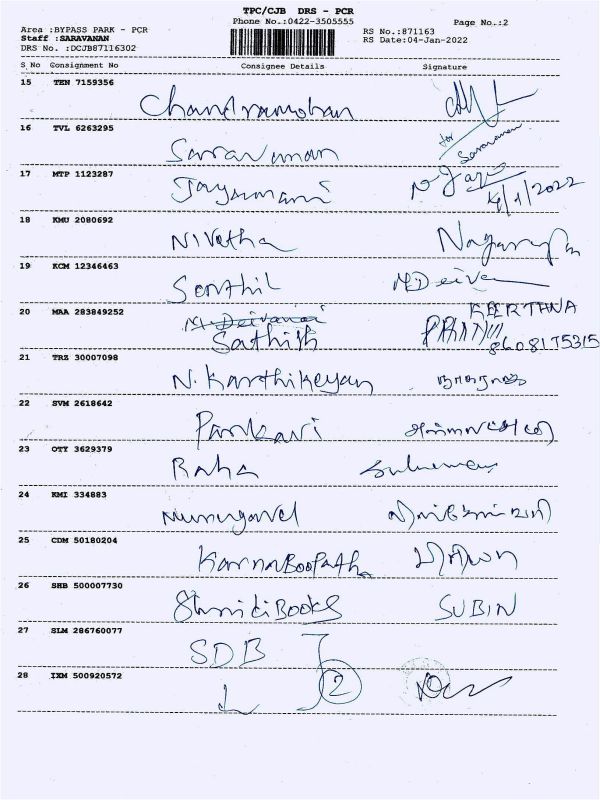 TPC/CJB DRS - PCR
Phone No.:0422-3505555
Page No.:2
Area :BYPASS PARK - PCR
RS No.:871163
Staff :SARAVANAN
RS Date:04-Jan-2022
DRS No. :DCJB87116302
S No Consignment No Consignee Details Signature
15 TEN 7159356
Chandramohan
for Saravanan
16 TVL 6263295
Saravanan
17 MTP 1123287
Jayamani
4/1/2022
18 KMU 2080692
Nivetha
19 KCM 12346463
Senthil M.Deiva
20 MAA 283849252
M. Deivanai KEERTHNA
Sathish 8608175315
21 TRZ 30007098
N. Karthikeyan
22 SVM 2618642
23 OTY 3629379
Raha
24 KMI 334883
Murugavel
25 CDM 50180204
KannaBoopath
26 SHB 500007730
Books SUBIN
27 SLM 286760077
SDB
28 IXM 500920572
2